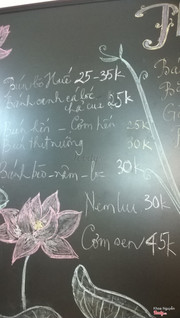 Bún bò Huế 25-35k
Bánh canh cá lóc - chả cua 25k
Bún hến - Cơm hến 25k
Bún thịt nướng 30k
Bánh bèo - nậm - lọc 30k
Nem lụi 30k
Cơm sen 45k